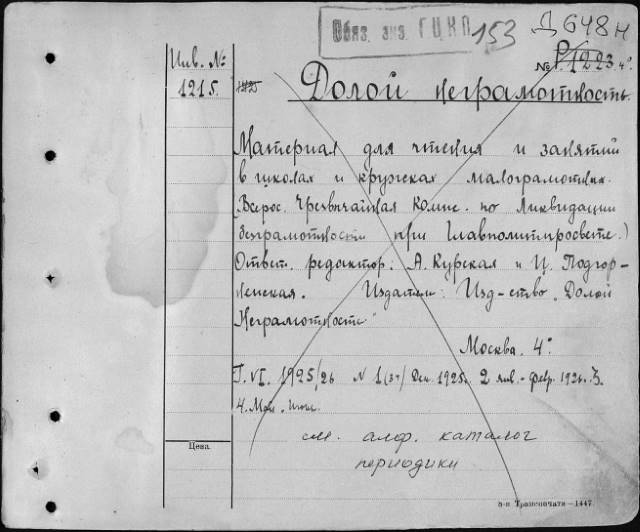 Обяз. экз. ГЦКП 153 Д 648 н
№ Р/1223. 4°.
Инв. №
1215.
Долой неграмотность.
Материал для чтения и занятий
в школах и кружках малограмотных
(Всерос. Чрезвычайная Комис. по ликвидации
безграмотности при Главполитпросвете.)
Ответ. редактор: А. Курская и Ц. Подгор-
ненская. Издатель: Изд-ство „Долой
Неграмотность"
Москва. 4°.
Г. VI. 1925/26 № 1 (37) Дек. 1925. 2 янв.-февр. 1926. 3.
4. Май.
см. алф. каталог
периодики
Цена.
8-я Транспечати—1447.